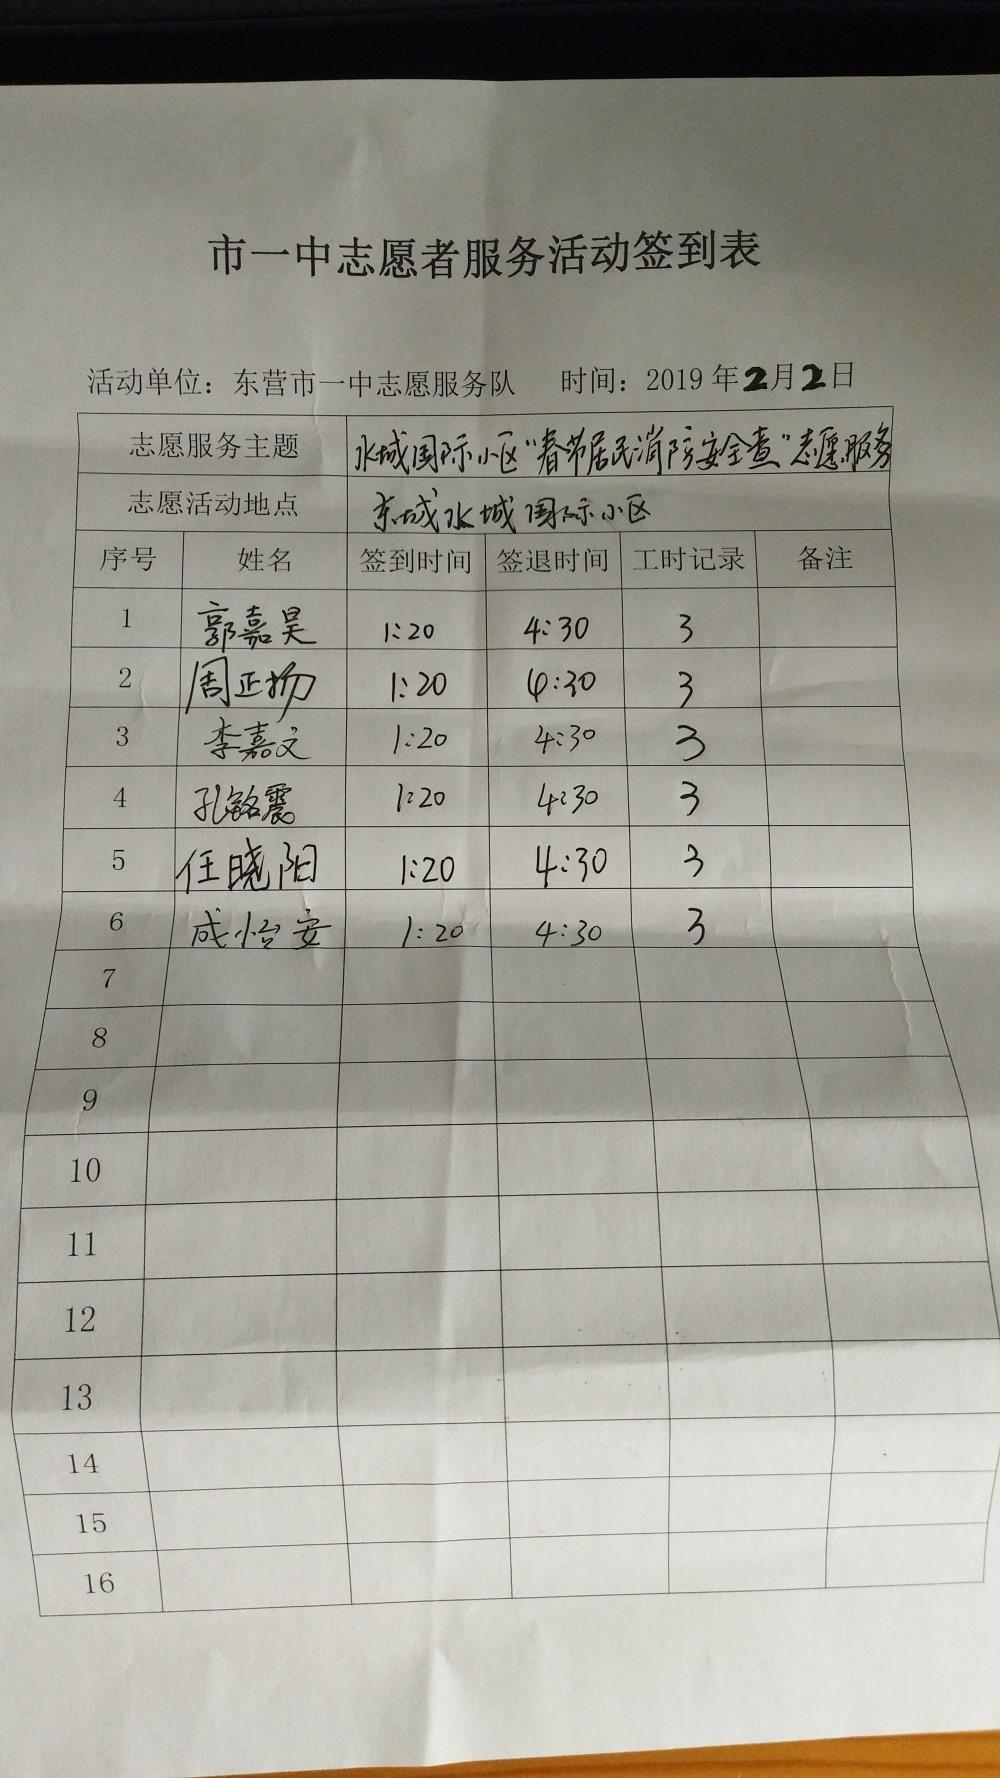 市一中志愿者服务活动签到表
活动单位：东营市一中志愿服务队 时间：2019年2月2日
志愿服务主题 水城国际小区“春节居民消防安全查”志愿服务
志愿活动地点 东城水城国际小区
序号 姓名 签到时间 签退时间 工时记录 备注
1 郭嘉昊 1:20 4:30 3
2 周正扬 1:20 4:30 3
3 李嘉文 1:20 4:30 3
4 孔铭震 1:20 4:30 3
5 任晓阳 1:20 4:30 3
6 成怡安 1:20 4:30 3
7
8
9
10
11
12
13
14
15
16